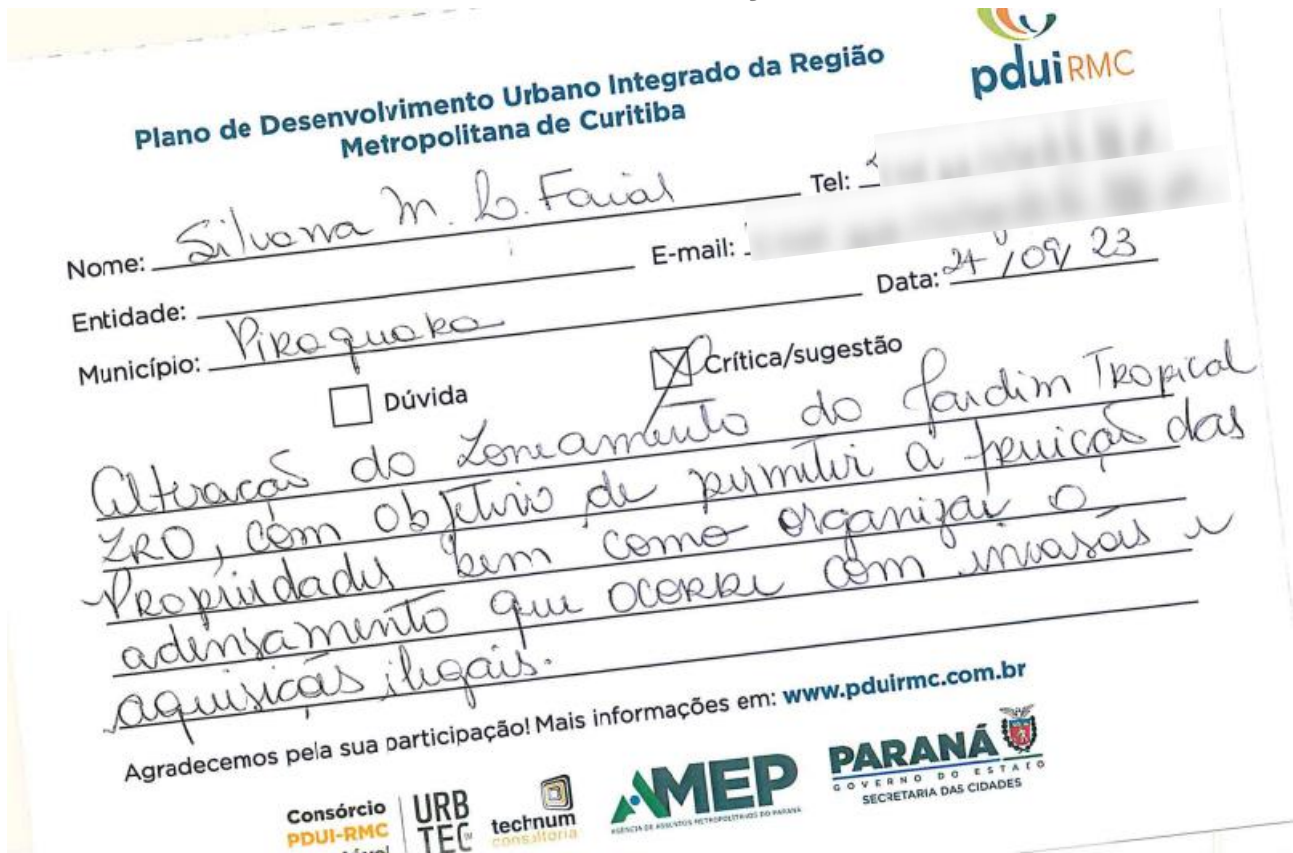 pduiRMC
Plano de Desenvolvimento Urbano Integrado da Região
Metropolitana de Curitiba
Nome: Silvana M. L. Faial Tel:
Entidade: E-mail:
Município: Piraquara Data: 24/09/23
Dúvida Crítica/sugestão
Alteração do Zoneamento do Jardim Tropical
ZRO, com objetivo de permitir a fruição das
Propriedades bem como organizar o
adensamento que ocorre com invasões e
aquisições ilegais.
Agradecemos pela sua participação! Mais informações em: www.pduirmc.com.br
Consórcio
PDUI-RMC
URB
TEC
technum
consultoria
AMEP
AGÊNCIA DE ASSUNTOS METROPOLITANOS DO PARANÁ
PARANÁ
GOVERNO DO ESTADO
SECRETARIA DAS CIDADES